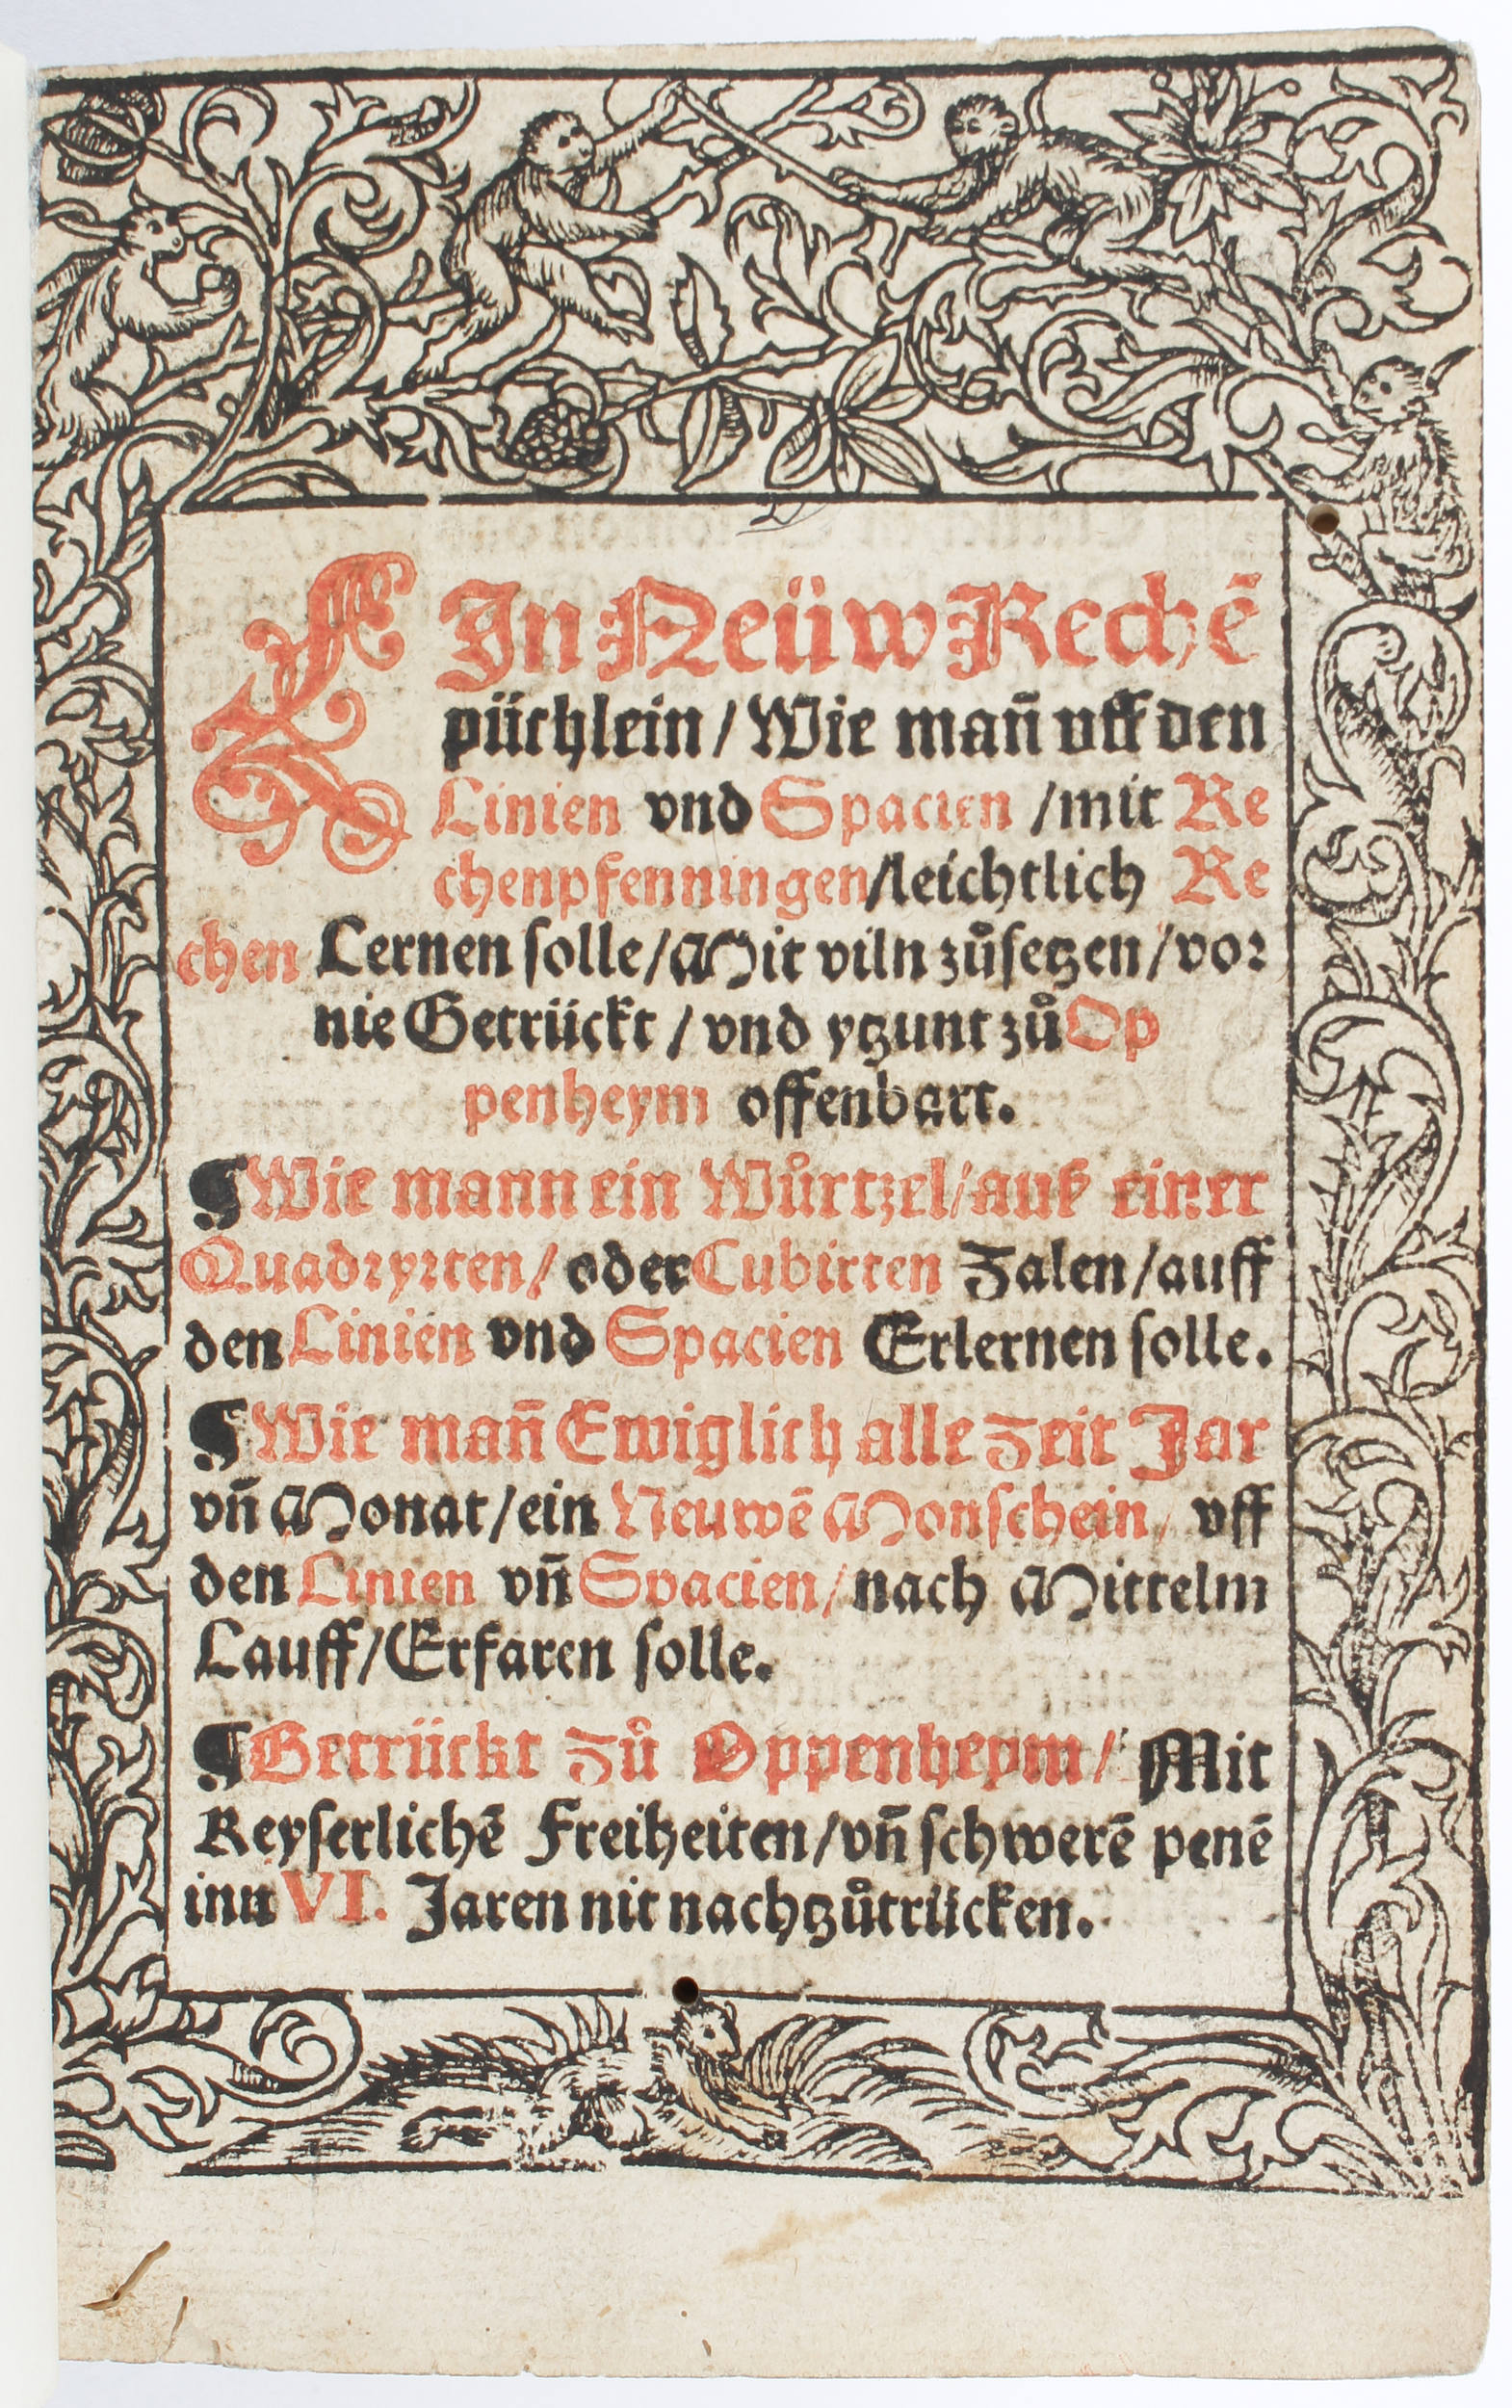 EIn Neüw Rechẽ
püchlein / Wie mañ uff den
Linien vnd Spacien / mit Re
chenpfenningen / leichtlich Re
chen Lernen solle / Mit viln zůsetzen / vor
nie Getrückt / vnd ytzunt zů Op
penheym offenbart.
¶ Wie mann ein Wůrtzel / auß einer
Quadryrten / oder Cubirten Zalen / auff
den Linien vnd Spacien Erlernen solle.
¶ Wie mañ Ewiglich alle Zeit Jar
vñ Monat / ein Neuwẽ Monschein / vff
den Linien vñ Spacien / nach Mittelm
Lauff / Erfaren solle.
¶ Getrückt Zů Oppenheym / Mit
Keyserlichẽ Freiheiten / vñ schwerẽ penẽ
inn VI. Jaren nit nachtzůtrücken.